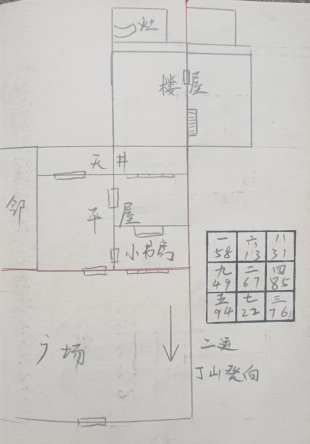 灶
楼屋
天井
邻
平屋
小书房
一 六 八
58 13 31
九 二 四
49 67 85
五 七 三
94 22 76
广场
二运
丁山癸向